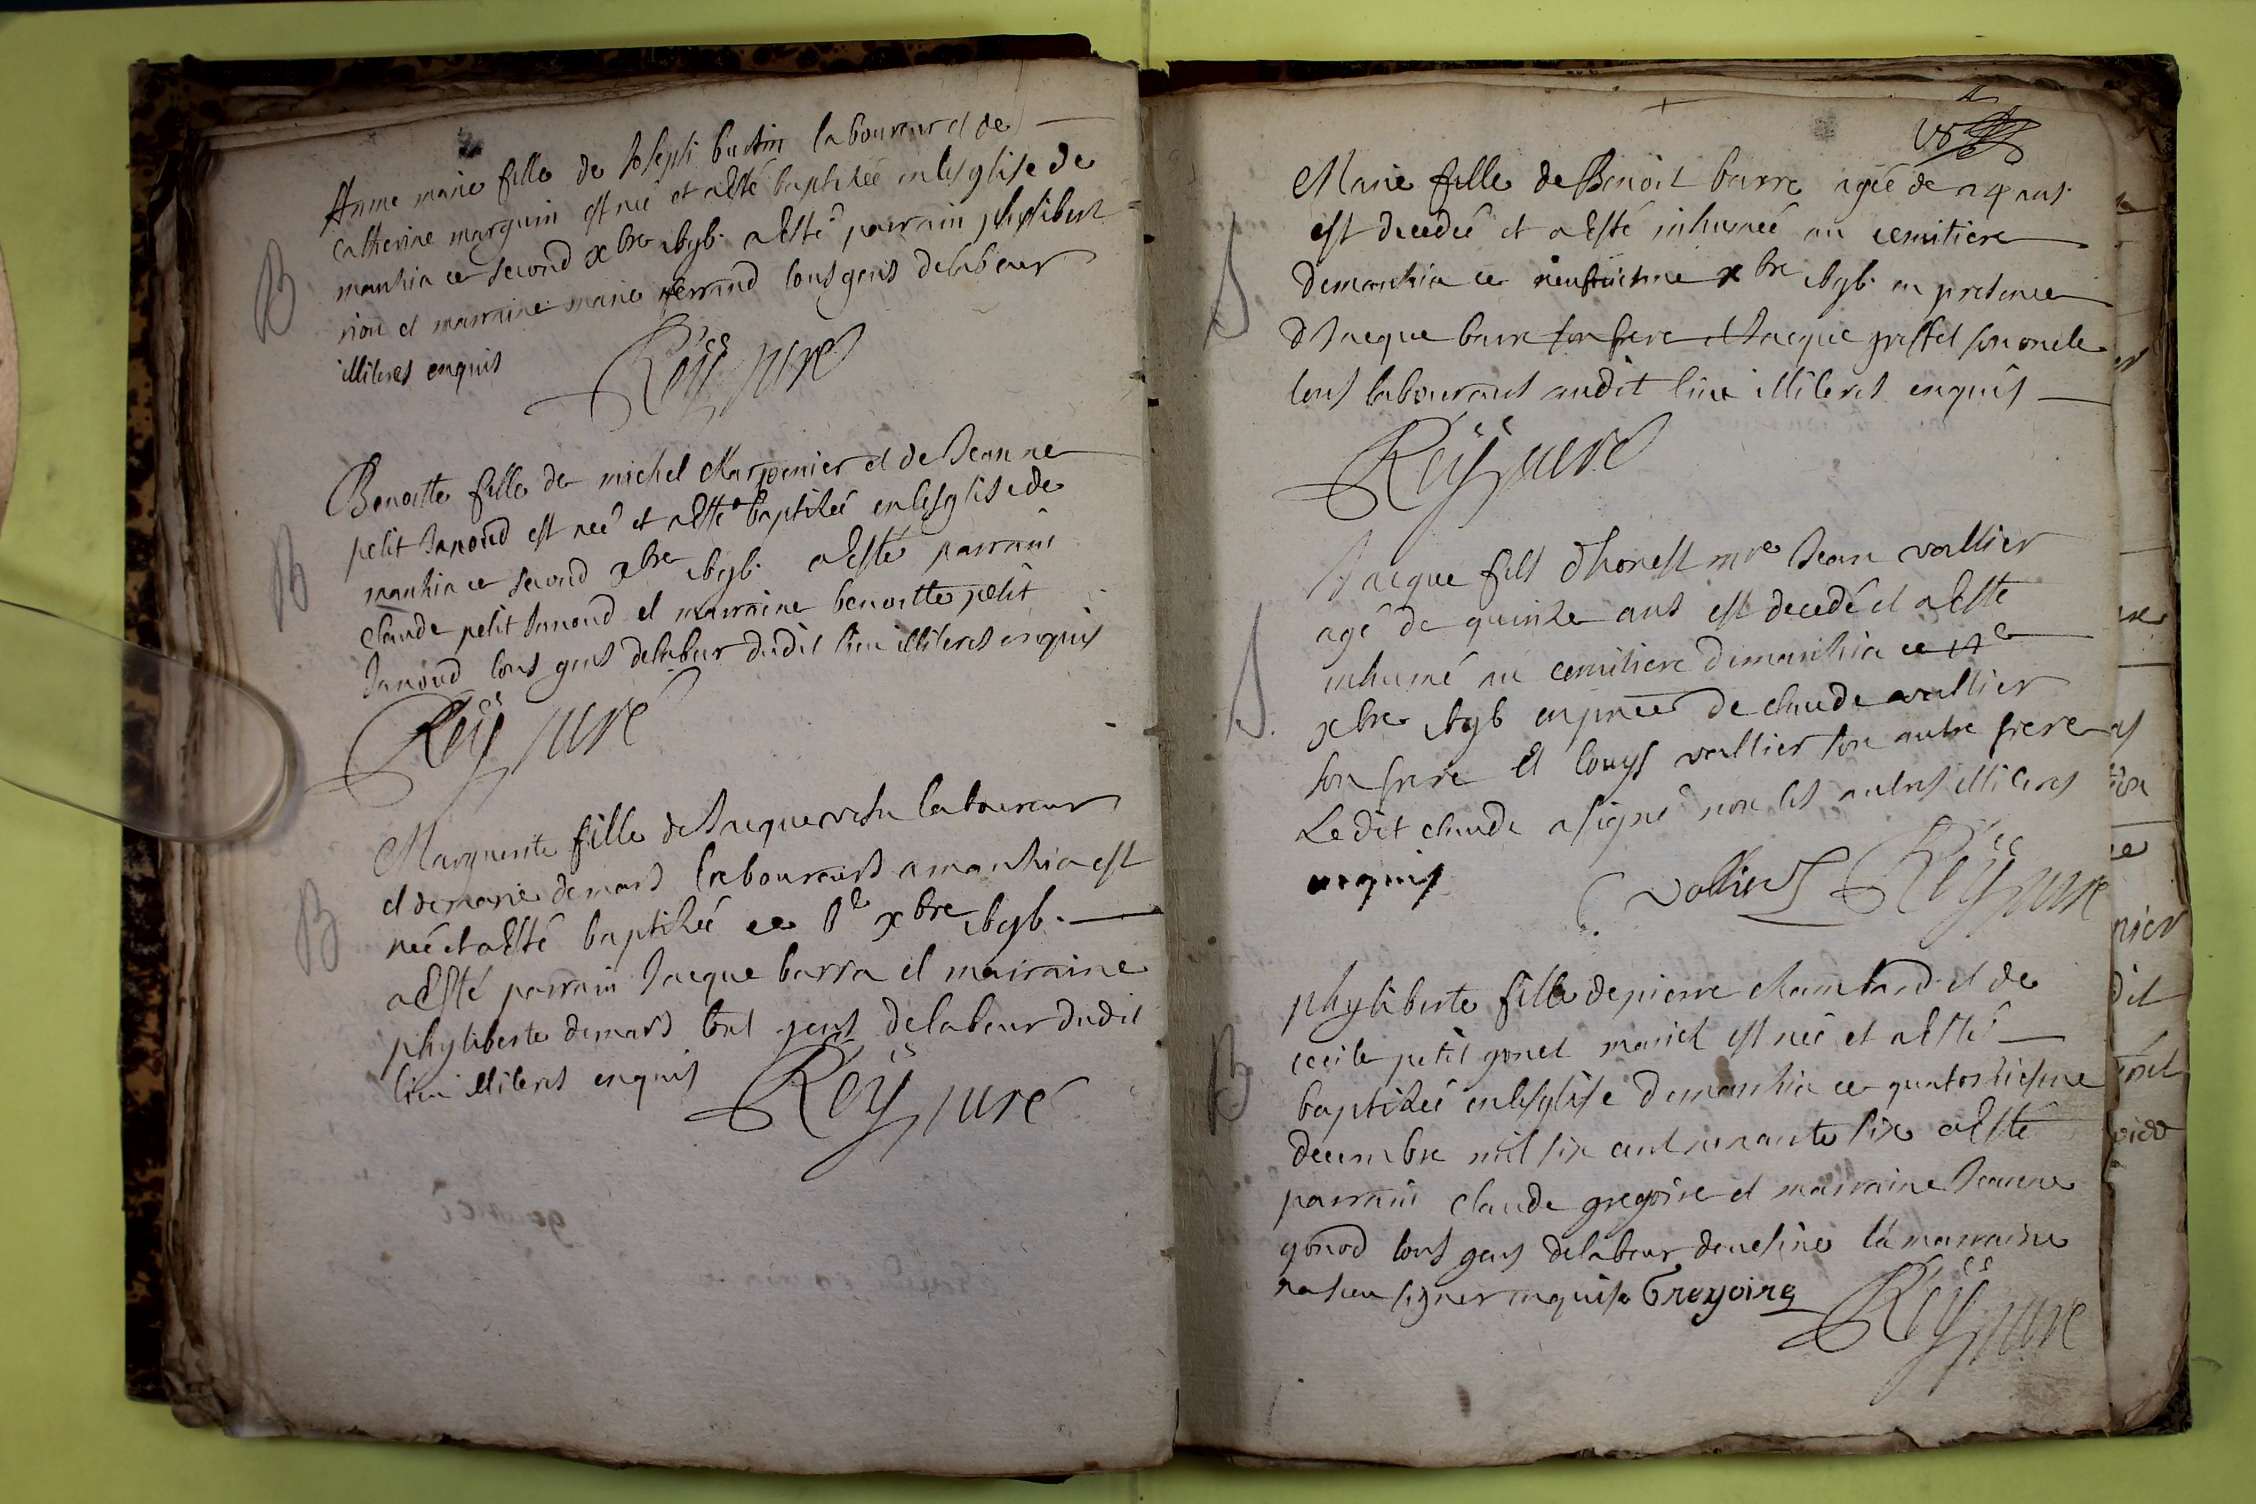 B
Anne marie fille de Joseph butin laboureur et de
catherine marguin est née et a Esté baptizée en lesglise de
manthia ce second xbre ibyb. a Esté parrain phylibert
riou et marraine marie ferrand tous gens de labeur
illiteres enquis
Reÿ curé
B
Benoitte fille de michel charpenier et de Jeanne
petit Janond est née et a Esté baptizée en lesglise de
manthia ce second xbre ibyb. a Esté parrain
claude petit Janond et marraine benoitte petit
Janond tous gens de labeur dudit lieu illiteres enquis
Reÿ curé
B
Marguerite fille de Jacque laboureur
et de marie demard laboureurs a manthia est
née et a Esté baptizée ce 8e xbre ibyb.
a Esté parrain Jacque barra et marraine
phyliberte demard tout gens de labeur dudit
lieu illiteres enquis
Reÿ curé
Marie fille de Benoit barra agée de 14 ans
est decedée et a Esté inhumée au cemitiere
de manthia ce neufviesme xbre ibyb. en presence
d Jacque barre son frere et Jacque griffet son oncle
tous laboureurs audit lieu illiteres enquis
Reÿ curé
Jacque fils d'honest mre Jean vallier
agé de quinze ans est decedé et a Este
inhumé au cemitiere de manthia ce 11e
xbre ibyb en pnce de claude vallier
son frere et Louys vallier son autre frere
Le dit claude a signé non les autres illiteres
enquis
vallier Reÿ curé
B
phyliberte fille de pierre chambard et de
cecile petit gonet mariet est née et a Esté
baptizée en lesglise de manthia ce quatorziesme
decembre mil six cent nonante six a Esté
parrain claude gregoire et marraine Jeanne
gonod tous gens de labeur la marraine
na sceu signer enquise Gregoire
Reÿ curé